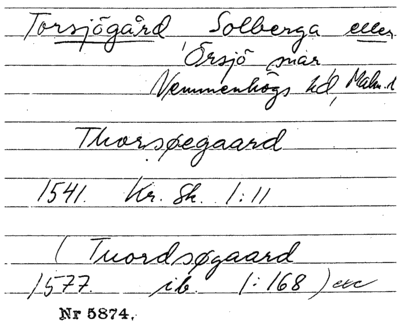 Torsjögård Solberga eller
Örsjö snar
Vemmenhögs hd, Malm. l
Thorsøegaard
1541. Kr. Sk. 1:11
( Tuordsøgaard
1577. ib. 1:168 ) etc
Nr 5874.